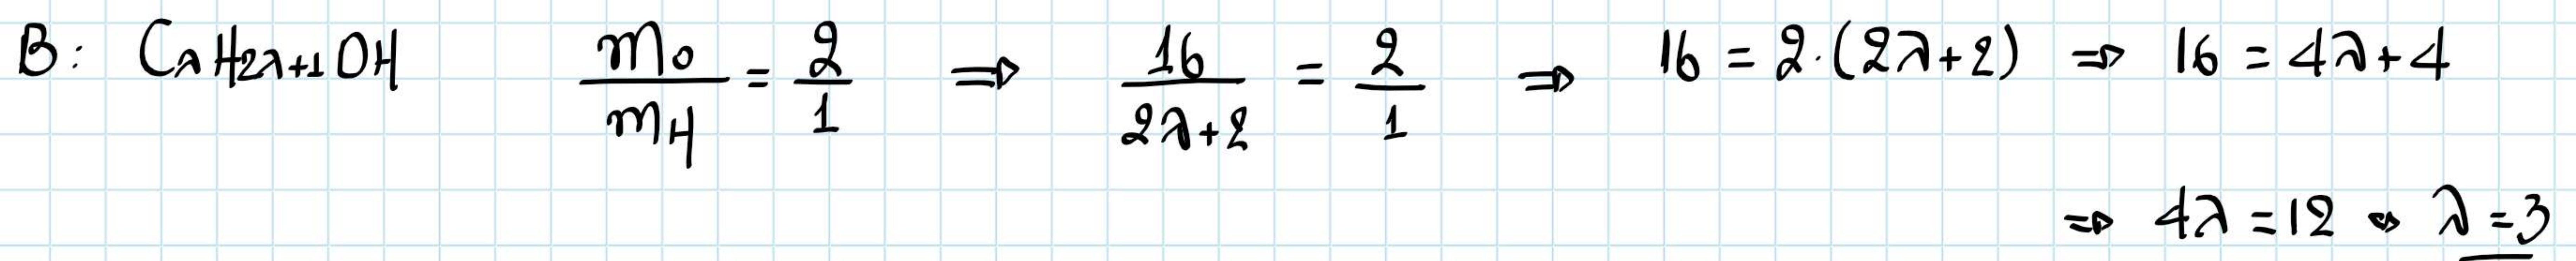 B: CλH2λ+1OH mO/mH = 2/1 ⇒ 16/2λ+2 = 2/1 ⇒ 16 = 2·(2λ+2) ⇒ 16 = 4λ+4
⇒ 4λ = 12 ⇔ λ = 3